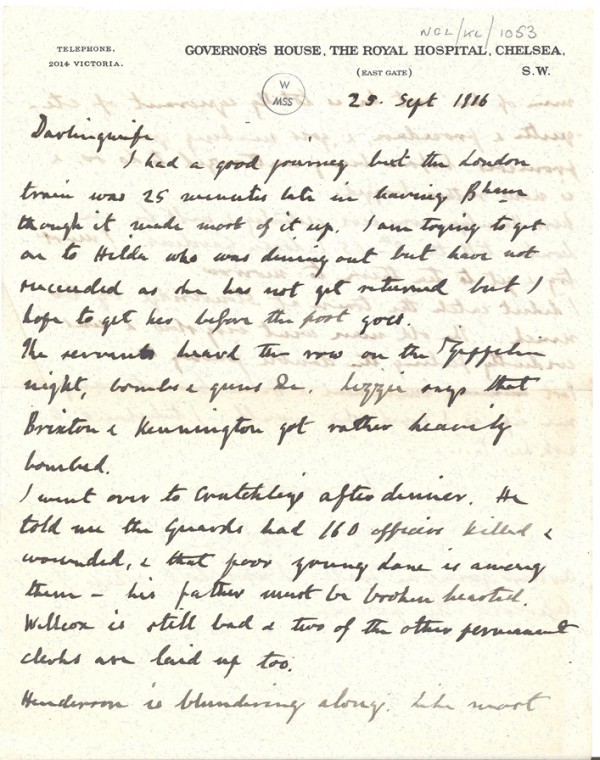 NCL/KL/1053
TELEPHONE.
2014 VICTORIA.
GOVERNOR'S HOUSE, THE ROYAL HOSPITAL, CHELSEA,
(EAST GATE)
S.W.
W
MSS
25. Sept 1916
Darlingwife
I had a good journey but the London
train was 25 minutes late in leaving Bham
though it made most of it up. I am trying to get
on to Hilda who was dining out but have not
succeeded as she has not yet returned but I
hope to get her before the post goes.
The servants heard the row on the Zeppelin
night, bombs & guns &c. Lizzie says that
Brixton & Kennington got rather heavily
bombed.
I went over to after dinner. He
told me the Guards had 160 officers killed &
wounded, & that poor young Lane is among
them - his father must be broken hearted.
Willcox is still bad & two of the other permanent
clerks are laid up too.
Henderson is blundering along. Like most